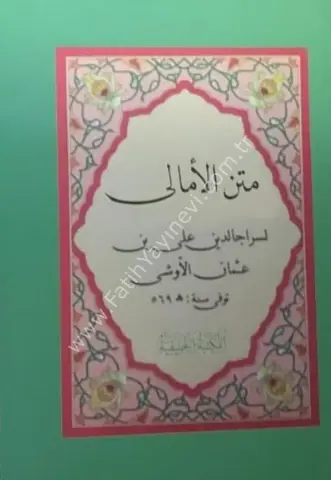 متن الأمالى
لسراجالدين على بن
عثمان الأوشى
توفى سنة: ٥٦٩ هـ
المكتبة الحنيفية
www.FatihYayinevi.com.tr